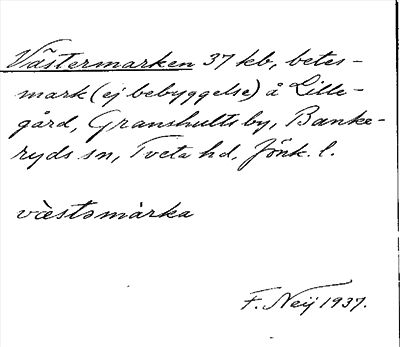 Västermarken 37 kb, betes-
mark (ej bebyggelse) å Lille-
gård, Granshults by, Banke-
ryds sn, Tveta hd, Jönk. l.
væstəmàrka
F. Neij 1937.